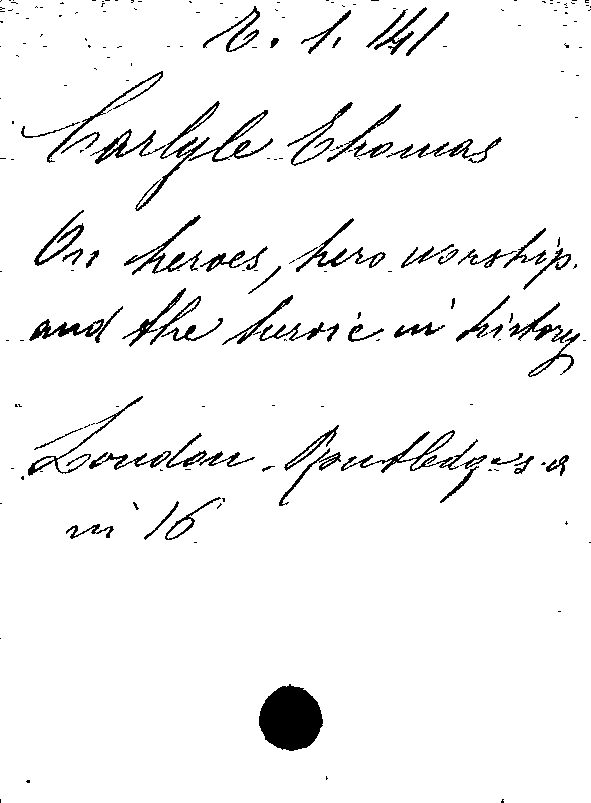 E. 1. 141
Carlyle Thomas
On heroes, hero worship.
and the heroic in history
London - Routledge s. a
in 16